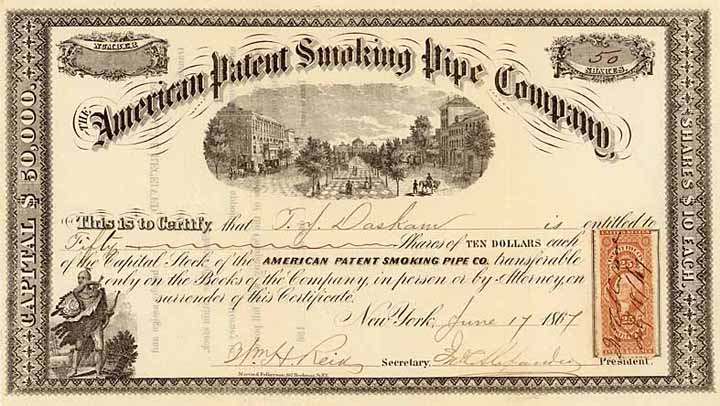 NUMBER
50
SHARES
THE American Patent Smoking Pipe Company,
CAPITAL $50,000.
SHARES $10 EACH.
This is to Certify that T. Y. Daskam is entitled to
Fifty Shares of TEN DOLLARS each
of the Capital Stock of the AMERICAN PATENT SMOKING PIPE CO. transferable
only on the Books of the Company, in person or by Attorney, on
surrender of this Certificate.
New York, June 17 1867
Wm H Reid Secretary. President.